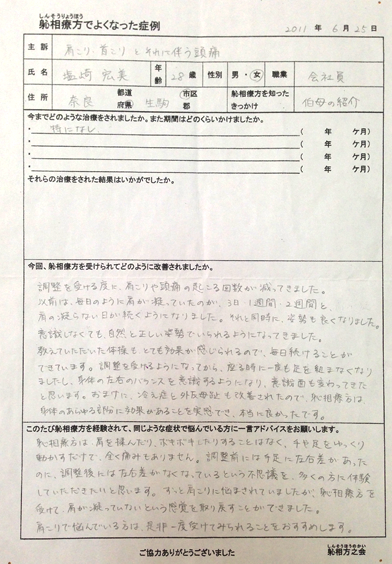 しんそうりょうほう
恥相療方でよくなった症例
2011 年 6 月 25 日
主訴 肩こり、首こり とそれに伴う頭痛
氏名 塩崎 宏美 年齢 28歳 性別 男・女 職業 会社員
住所 奈良 都道府県 生駒 市区郡 恥相療方を知ったきっかけ 伯母の紹介
今までどのような治療をされましたか。また期間はどのくらいかけましたか。
・ 特になし ( 年 ケ月)
・ ( 年 ケ月)
・ ( 年 ケ月)
・ ( 年 ケ月)
それらの治療をされた結果はいかがでしたか。
今回、恥相療方を受けられてどのように改善されましたか。
調整を受ける度に、肩こりや頭痛の起こる回数が減ってきました。
以前は、毎日のように肩が凝っていたのが、3日 1週間・2週間と
肩の凝らない日が続くようになりました。それと同時に、姿勢も良くなりました。
意識しなくても、自然と正しい姿勢でいられるようになってきました。
教えていただいた体操も とても効果が感じられるので、毎日続けることが
できています。調整を受けるようになってから、座る時に一度も足を組まなくなり
ましたし、身体の左右のバランスを意識するようになり、意識面も変わってきた
と思います。おまけに、冷え症と外反母趾も改善されたので、恥相療方は
身体のあらゆる部分に効果があることを実感でき、本当に良かったです。
このたび恥相療方を経験されて、同じような症状で悩んでいる方に一言アドバイスをお願いします。
恥相療方は 肩を揉んだり、ボキボキしたりすることはなく、手や足をゆっくり
動かすだけで、全く痛みもありません。調整前には手足に左右差があった
のに、調整後には左右差がなくなっているという不思議を、多くの方に体験
していただきたいと思います。ずっと肩こりに悩まされていましたが、恥相療方を
受けて、肩が凝っていないという感覚を取り戻すことができました。
肩こりで悩んでいる方は、是非一度受けてみられることをおすすめします。
ご協力ありがとうございました
しんそうりょうほうのかい
恥相療方之会